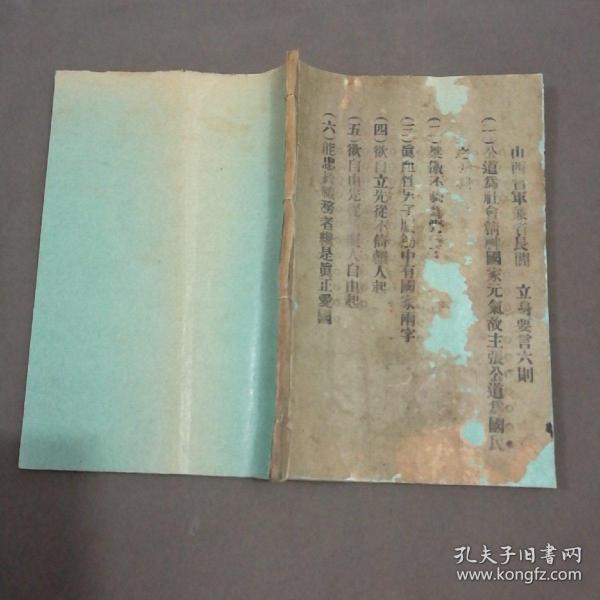 山西省軍兼省長閻 立身要言六則
(一)公道為社會精神國家元氣故主張公道為國民
(三)眞血性男子腦筋中有國家兩字
(四)欲自立先從不倚賴人起
(五)欲自由先從人自由起
(六)能忠於職務者纔是眞正愛國
孔夫子旧书网
www.kongfz.com